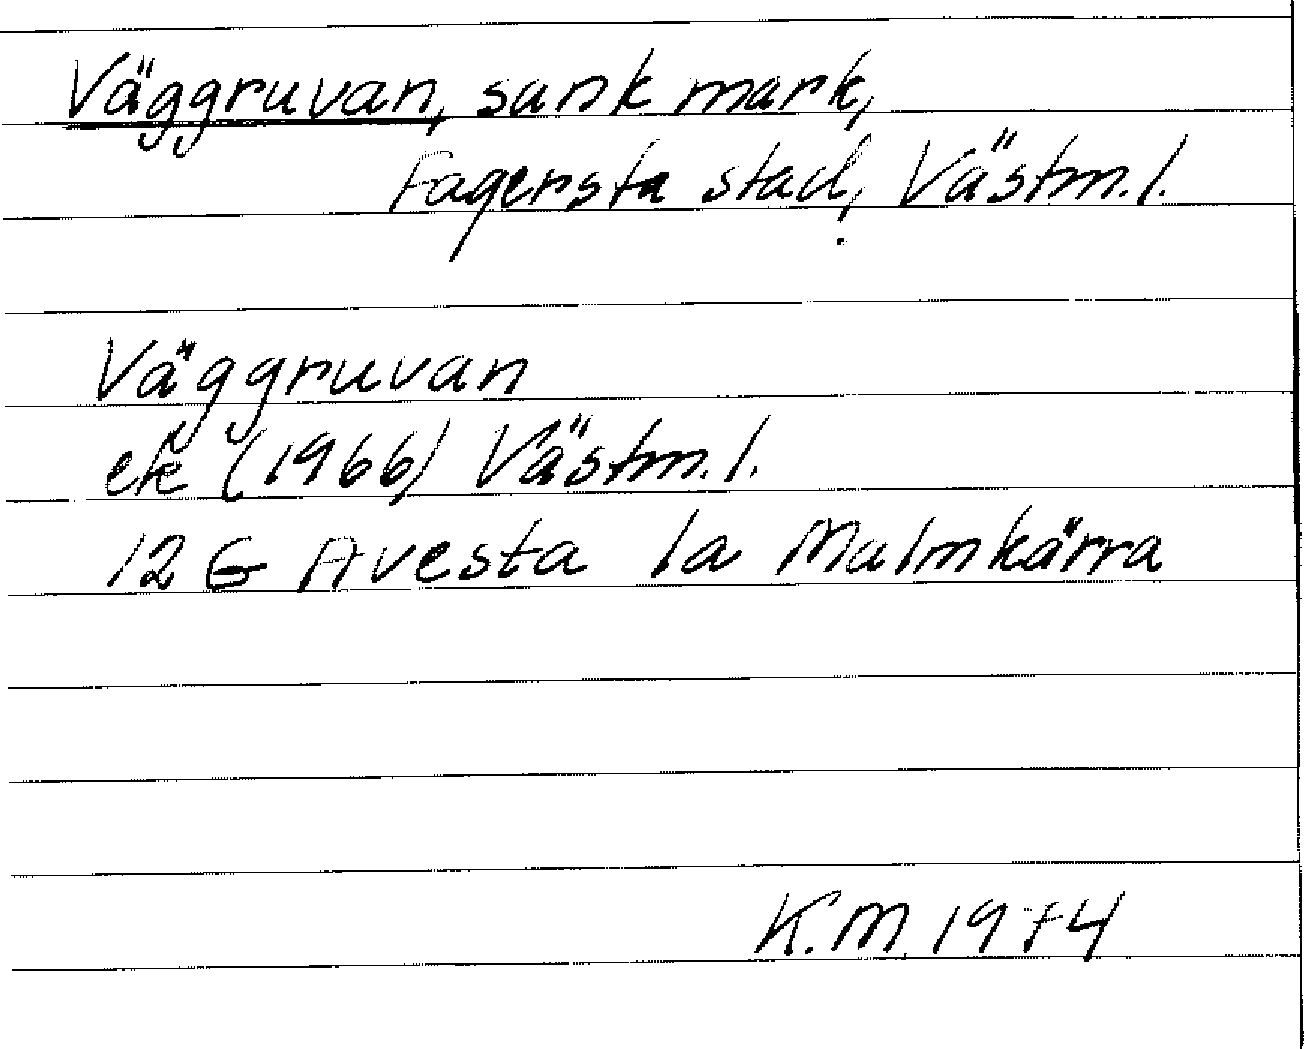 Väggruvan, sank mark,
Fagersta stad, Västm. l.
Väggruvan
ek (1966) Västm. l.
12 G Avesta 1a Malmkärra
K. M. 1974